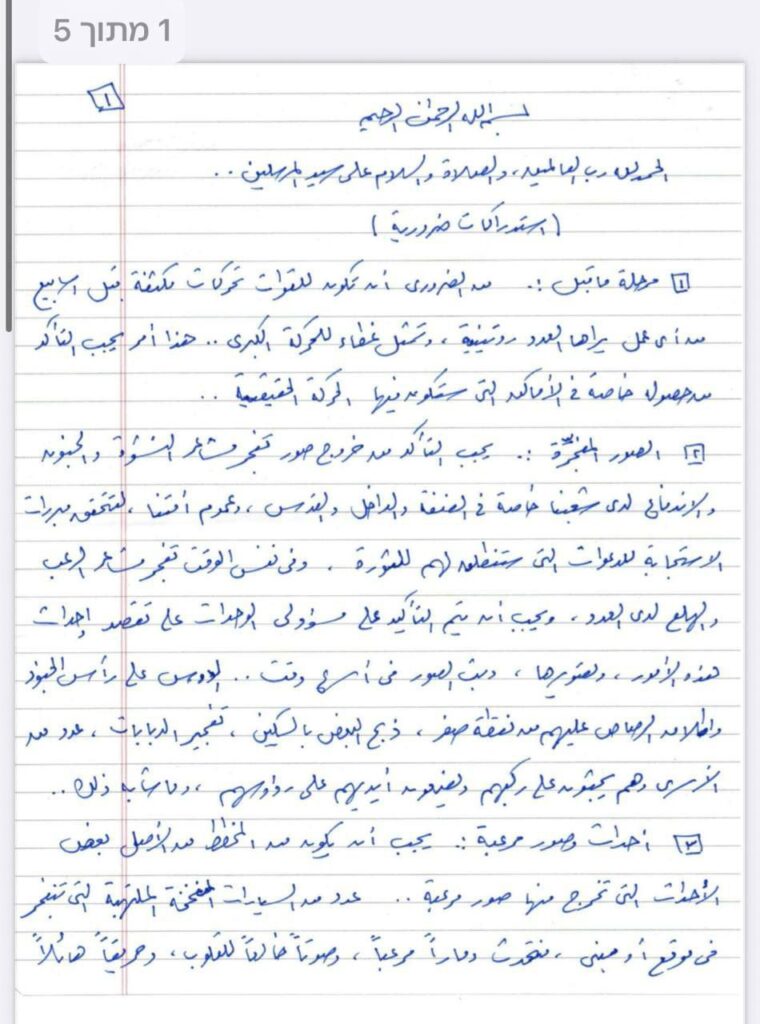 1 מתוך 5
١
بسم الله الرحمن الرحيم
الحمد لله رب العالمين، والصلاة والسلام على سيد المرسلين ..
(استدراكات ضرورية)
١ مرحلة ما قبل :. من الضروري أن تكون للقوات تحركات مكثفة قبل اسابيع
من أي عمل يراها العدو روتينية، وتمثل غطاء للحركة الكبرى .. هذا أمر يجب التأكد
من حصوله خاصة في الأماكن التي ستكون فيها الحركة الحقيقية ..
٢ الصور المفجرة :. يجب التأكد من خروج صور تفجر مشاعر النشوة والجنون
والاندفاع لدى شعبنا خاصة في الضفة والداخل والقدس، وعموم أمتنا، لتتحقق مبررات
الاستجابة للدعوات التي ستنطلق لهم للثورة، وفي نفس الوقت تفجر مشاعر الرعب
والهلع لدى العدو، ويجب أن يتم التأكيد على مسؤولي الوحدات على تقصد إحداث
هذه الأمور، وتصويرها، وبث الصور في أسرع وقت .. الدوس على رأس الجنود
واطلاق الرصاص عليهم من نقطة صفر، ذبح البعض بالسكين، تفجير الدبابات، عدد من
الأسرى وهم يجثون على ركبهم ويضعون أيديهم على رؤوسهم، وما شابه ذلك ..
٣ أحداث وصور مرعبة :. يجب أن يكون من المخطط من الأصل بعض
الأحداث التي تخرج منها صور مرعبة .. عدد من السيارات المفخخة الملتهبة التي تنفجر
في موقع أو مبنى، فتحدث دماراً مرعباً، وصوتاً خالعاً للقلوب، وحريقاً هائلاً